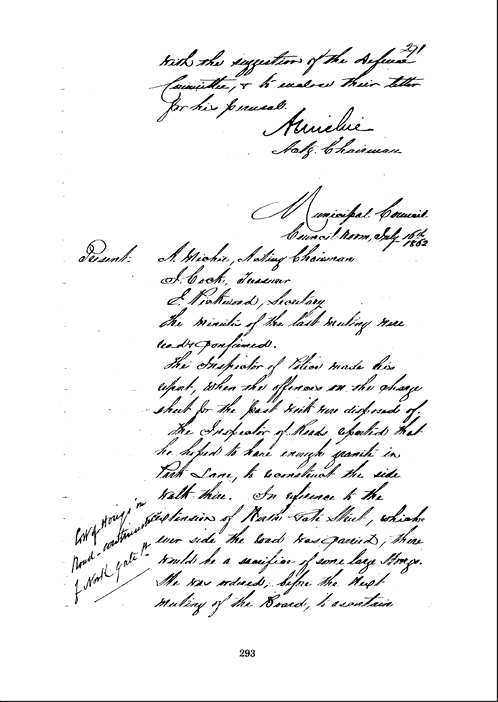 291
with the suggestion of the Defence
Committee, & to enclose their letter
for his perusal.
A Michie
Actg. Chairman
Municipal Council.
Council Room, July 16th
1862
Present: A. Michie, Acting Chairman
J. Cock, Treasurer
E. Pickwoad, Secretary
The minutes of the last meeting were
read & confirmed.
The Inspector of Police made his
report, when the offences on the charge
sheet for the past week were disposed of.
The Inspector of Roads reported that
he hoped to have enough granite in
Park Lane, to reconstruct the side
walk there. In reference to the
extension of North Gate Street, which-
ever side the road was carried, there
would be a sacrifice of some large Hongs.
He was ordered, before the next
meeting of the Board, to ascertain
Cost of Hongs in
Road - continuation
of North gate St
293